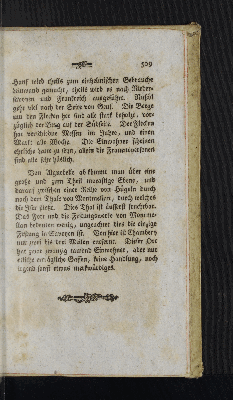 509
Hanf wird theils zum einheimischen Gebrauche
Leinwand gemacht, theils wird es nach Nieder-
savoyen und Frankreich ausgeführt. Nußöl
geht viel nach der Seite von Genf. Die Berge
um den Flecken her sind alle stark beholzt, vor-
züglich der Berg auf der Südseite. Der Flecken
hat verschiedene Messen im Jahre, und einen
Markt alle Woche. Die Einwohner scheinen
ehrliche Leute zu seyn, allein die Frauenspersonen
sind alle sehr häßlich.
Von Aiguebelle ab kömmt man über eine
große und zum Theil morastige Ebene, und
darauf zwischen einer Reihe von Hügeln durch
nach dem Thale von Montmelian, durch welches
die Isar fließt. Dies Thal ist äusserst fruchtbar.
Das Fort und die Festungswerke von Montme-
lian bedeuten wenig, ungeachtet dies die einzige
Festung in Savoyen ist. Von hier ist Chambery
nur zwei bis drei Meilen entfernt. Dieser Ort
hat zwar zwanzig tausend Einwohner, aber nur
etliche erträgliche Gassen, keine Handlung, noch
irgend sonst etwas merkwürdiges.